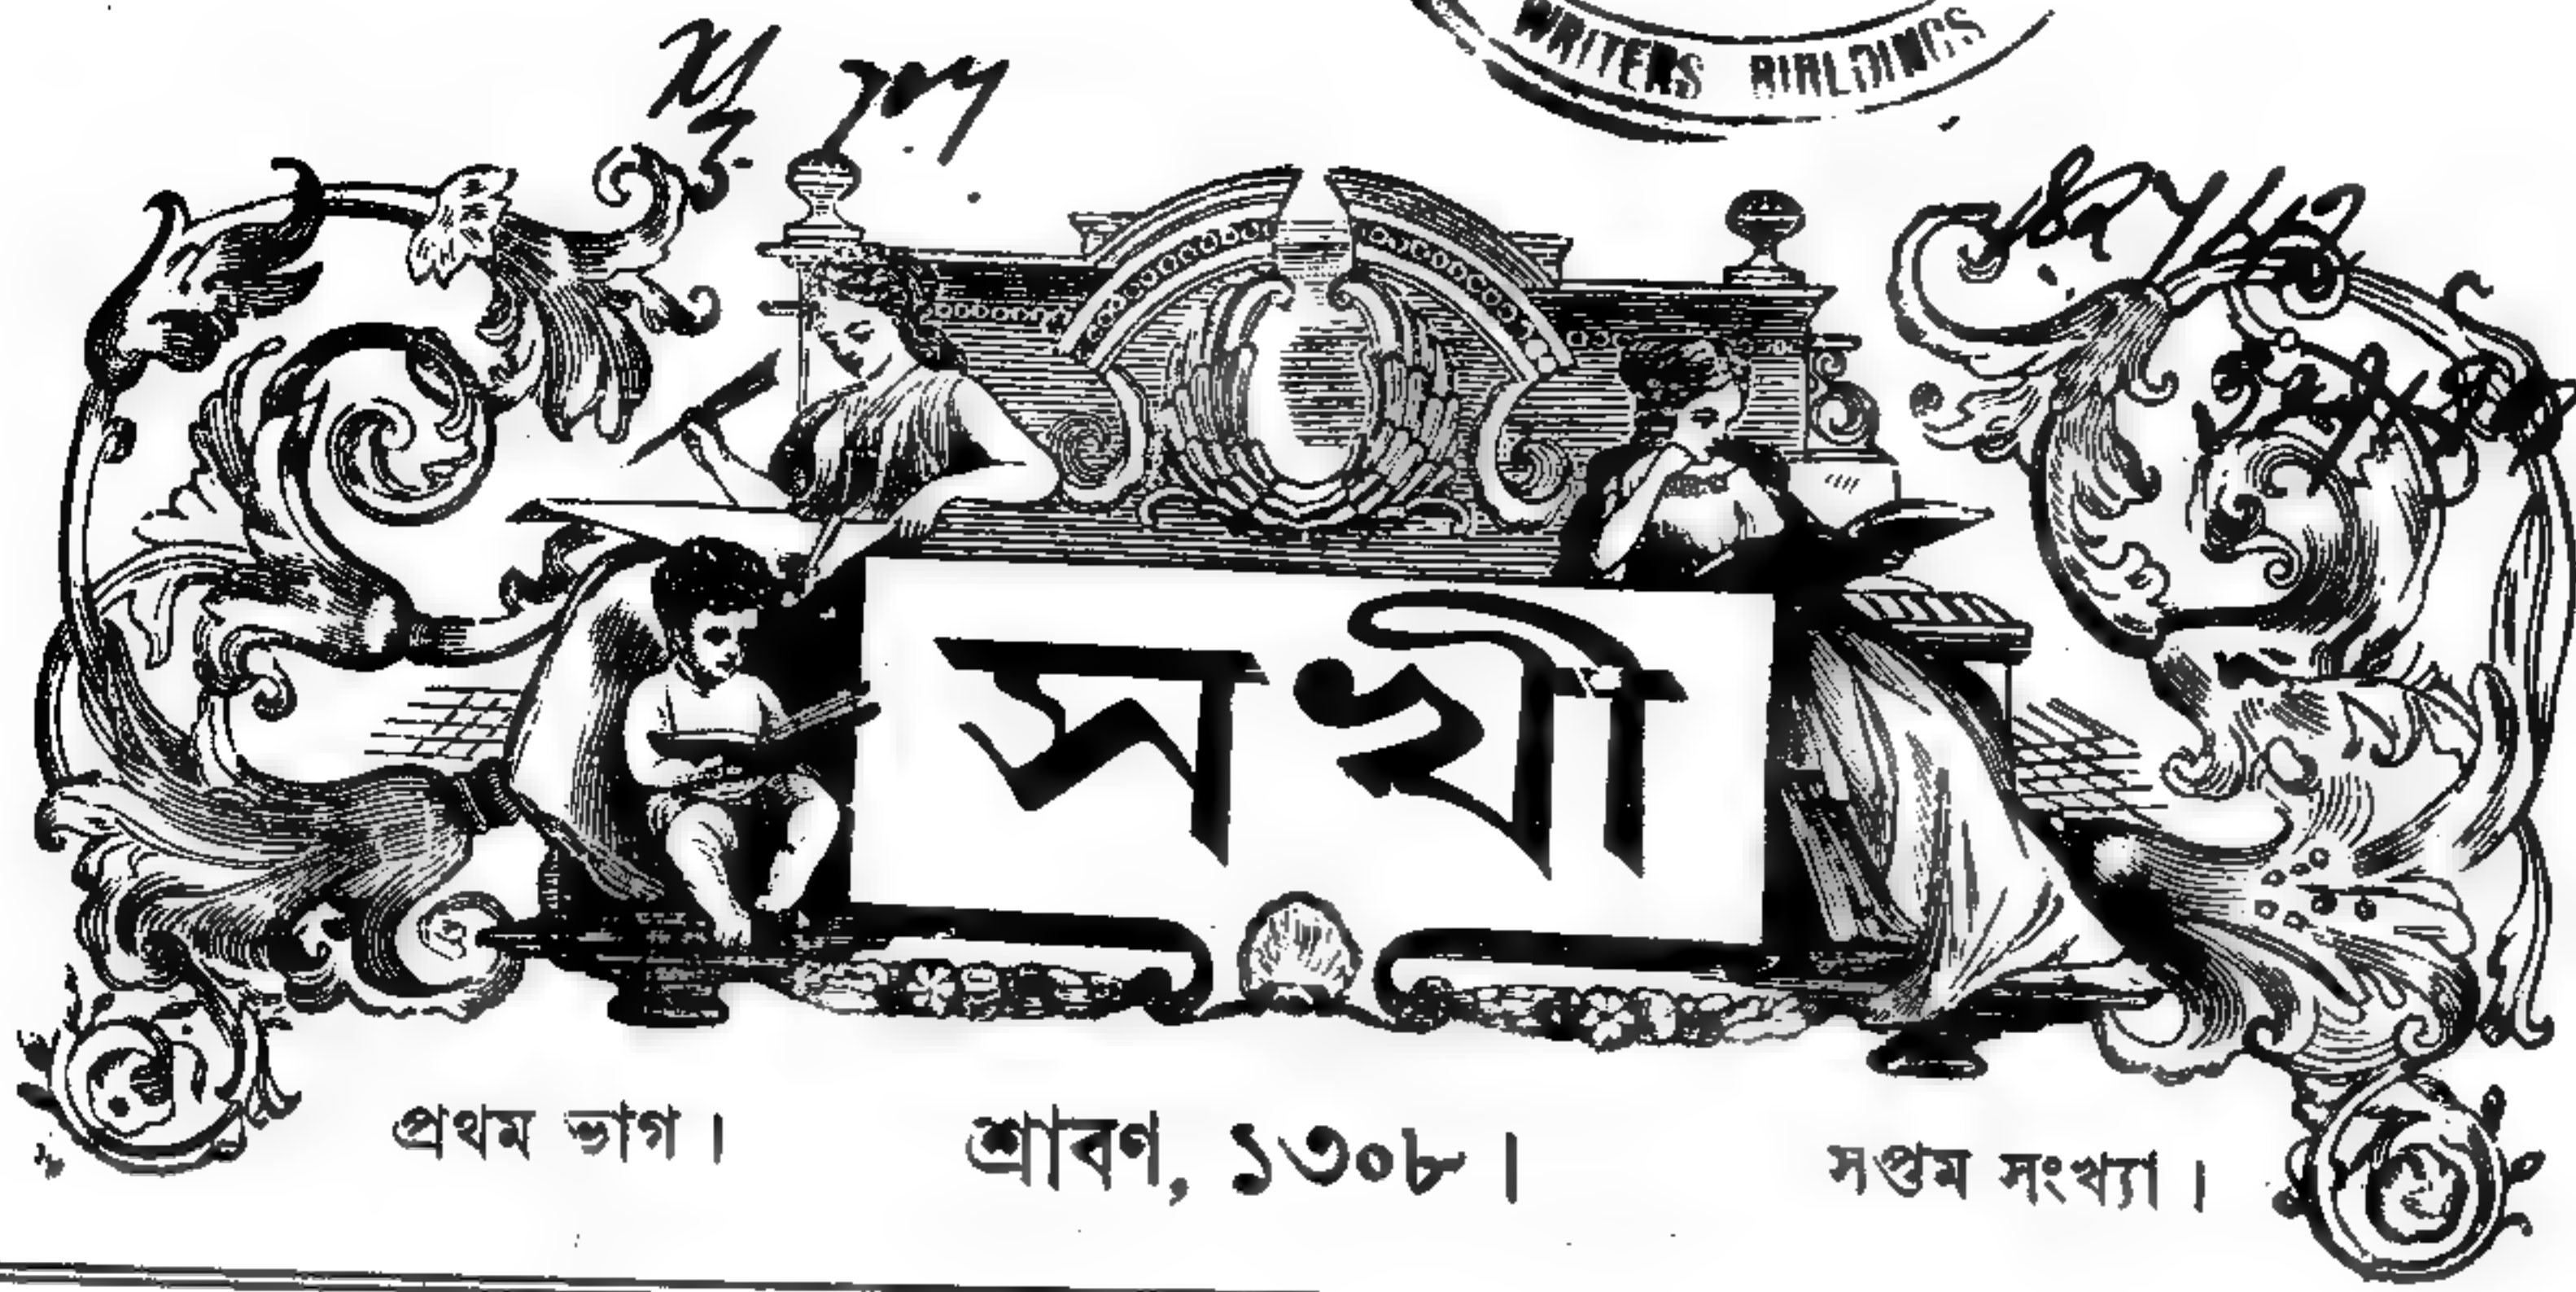 WRITERS BUILDINGS
সখী
প্রথম ভাগ । শ্রাবণ, ১৩০৮ । সপ্তম সংখ্যা ।